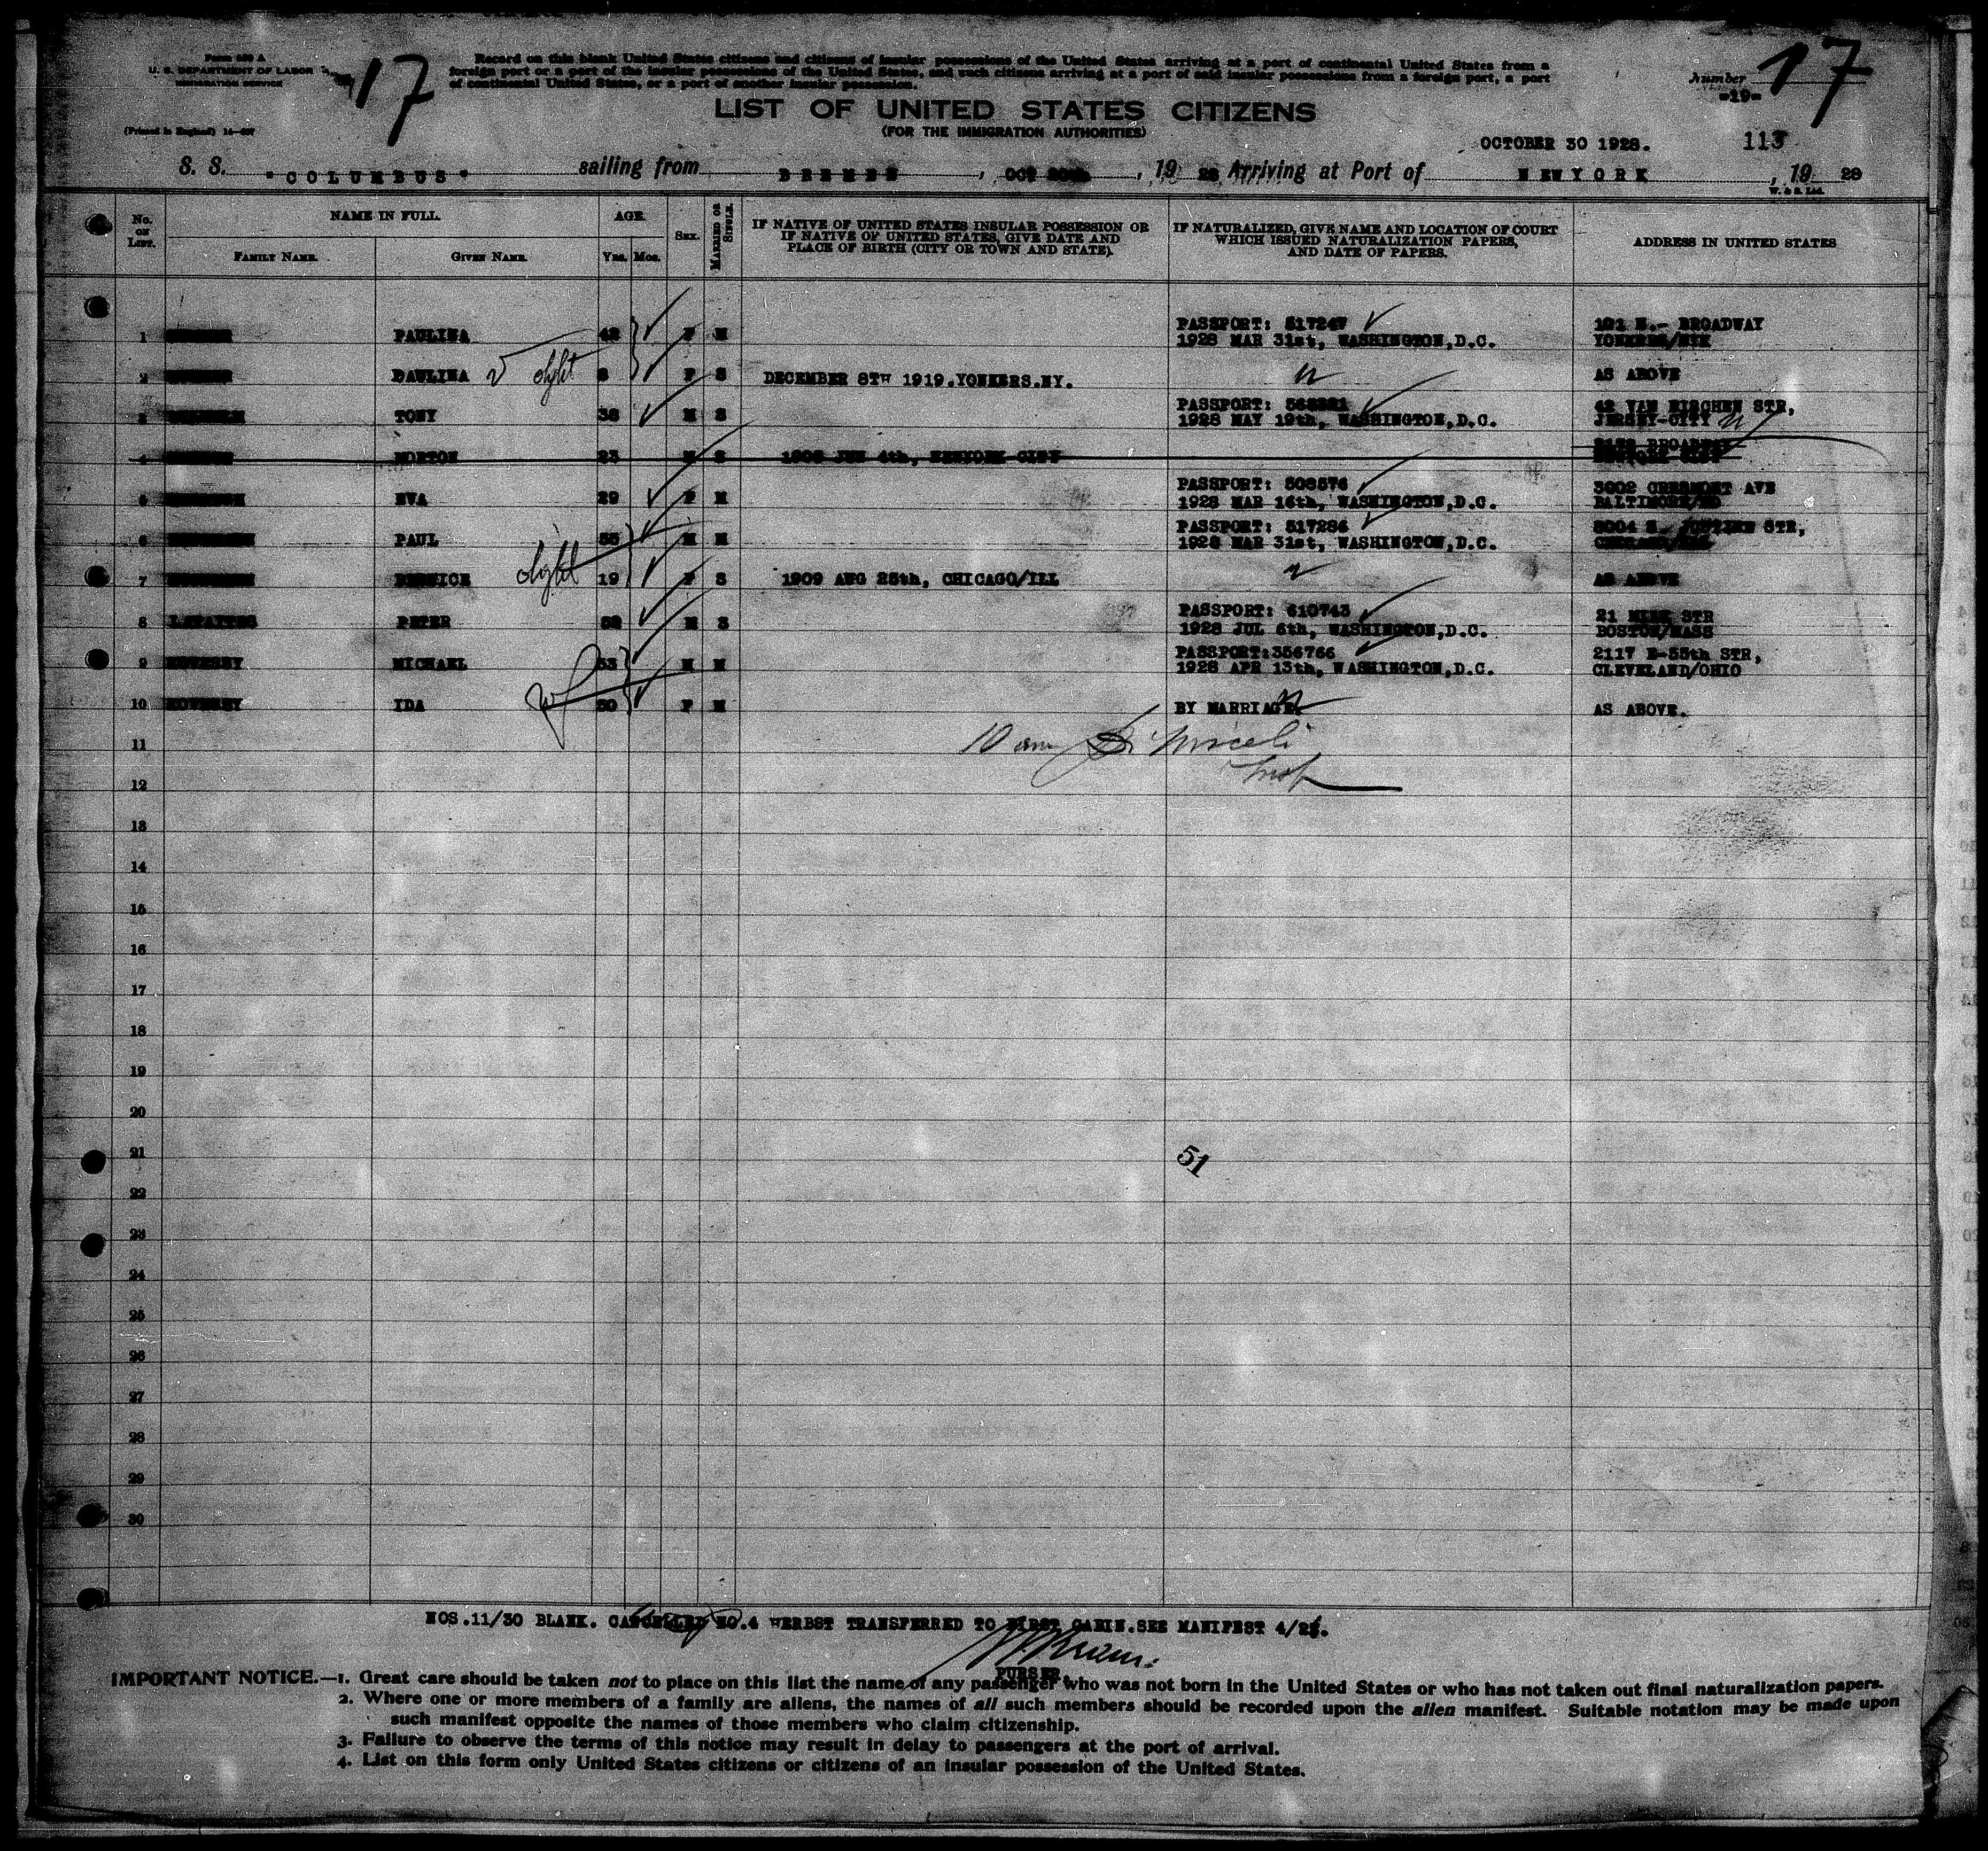 Form 630 A
U. S. DEPARTMENT OF LABOR
IMMIGRATION SERVICE
(Printed in England)
17
Record on this blank United States citizens and citizens of insular possessions of the United States arriving at a port of continental United States from a
foreign port or a port of the insular possessions of the United States, and such citizens arriving at a port of said insular possessions from a foreign port, a port
of continental United States, or a port of another insular possession.
Number 17
-19-
LIST OF UNITED STATES CITIZENS
(FOR THE IMMIGRATION AUTHORITIES)
OCTOBER 30 1928. 113
S. S. "COLUMBUS" sailing from BREMEN, OCT 20th, 1928 Arriving at Port of NEWYORK, 1928
W. & S. Ltd.
No. ON LIST. NAME IN FULL. FAMILY NAME. GIVEN NAME. AGE. YRS. MOS. SEX. MARRIED OR SINGLE. IF NATIVE OF UNITED STATES INSULAR POSSESSION OR IF NATIVE OF UNITED STATES, GIVE DATE AND PLACE OF BIRTH (CITY OR TOWN AND STATE). IF NATURALIZED, GIVE NAME AND LOCATION OF COURT WHICH ISSUED NATURALIZATION PAPERS, AND DATE OF PAPERS. ADDRESS IN UNITED STATES
1 PAULINA F M PASSPORT: 517247 1928 MAR 31st, WASHINGTON,D.C. 121 N.- BROADWAY YONKERS/NYK
2 PAULINA 8 F S DECEMBER 8TH 1919.YONKERS.NY. AS ABOVE
3 TONY 38 M S PASSPORT: 1928 MAY 19th, WASHINGTON,D.C. 42 VAN STR, JERSEY-CITY
4 MORTON 23 M S JUN 4th, NEWYORK CITY BROADWAY
5 EVA 29 F M PASSPORT: 508576 1928 MAR 16th, WASHINGTON,D.C. 3002 AVE BALTIMORE/MD
6 PAUL M M PASSPORT: 517286 1928 MAR 31st, WASHINGTON,D.C. STR,
7 BERNICE 19 F S 1909 AUG 25th, CHICAGO/ILL AS ABOVE
8 PETER M S PASSPORT: 610743 1928 JUL 6th, WASHINGTON,D.C. 21 STR BOSTON/MASS
9 MICHAEL 53 M M PASSPORT:356766 1928 APR 13th, WASHINGTON,D.C. 2117 E-55th STR, CLEVELAND/OHIO
10 IDA 50 F M BY MARRIAGE. AS ABOVE.
11
12
13
14
15
16
17
18
19
20
21 51
22
23
24
25
26
27
28
29
30
NOS.11/30 BLANK. CANCELLED NO.4 WERBST TRANSFERRED TO FIRST CABIN.SEE MANIFEST
PURSER.
IMPORTANT NOTICE.—1. Great care should be taken not to place on this list the name of any passenger who was not born in the United States or who has not taken out final naturalization papers.
2. Where one or more members of a family are aliens, the names of all such members should be recorded upon the alien manifest. Suitable notation may be made upon
such manifest opposite the names of those members who claim citizenship.
3. Failure to observe the terms of this notice may result in delay to passengers at the port of arrival.
4. List on this form only United States citizens or citizens of an insular possession of the United States.